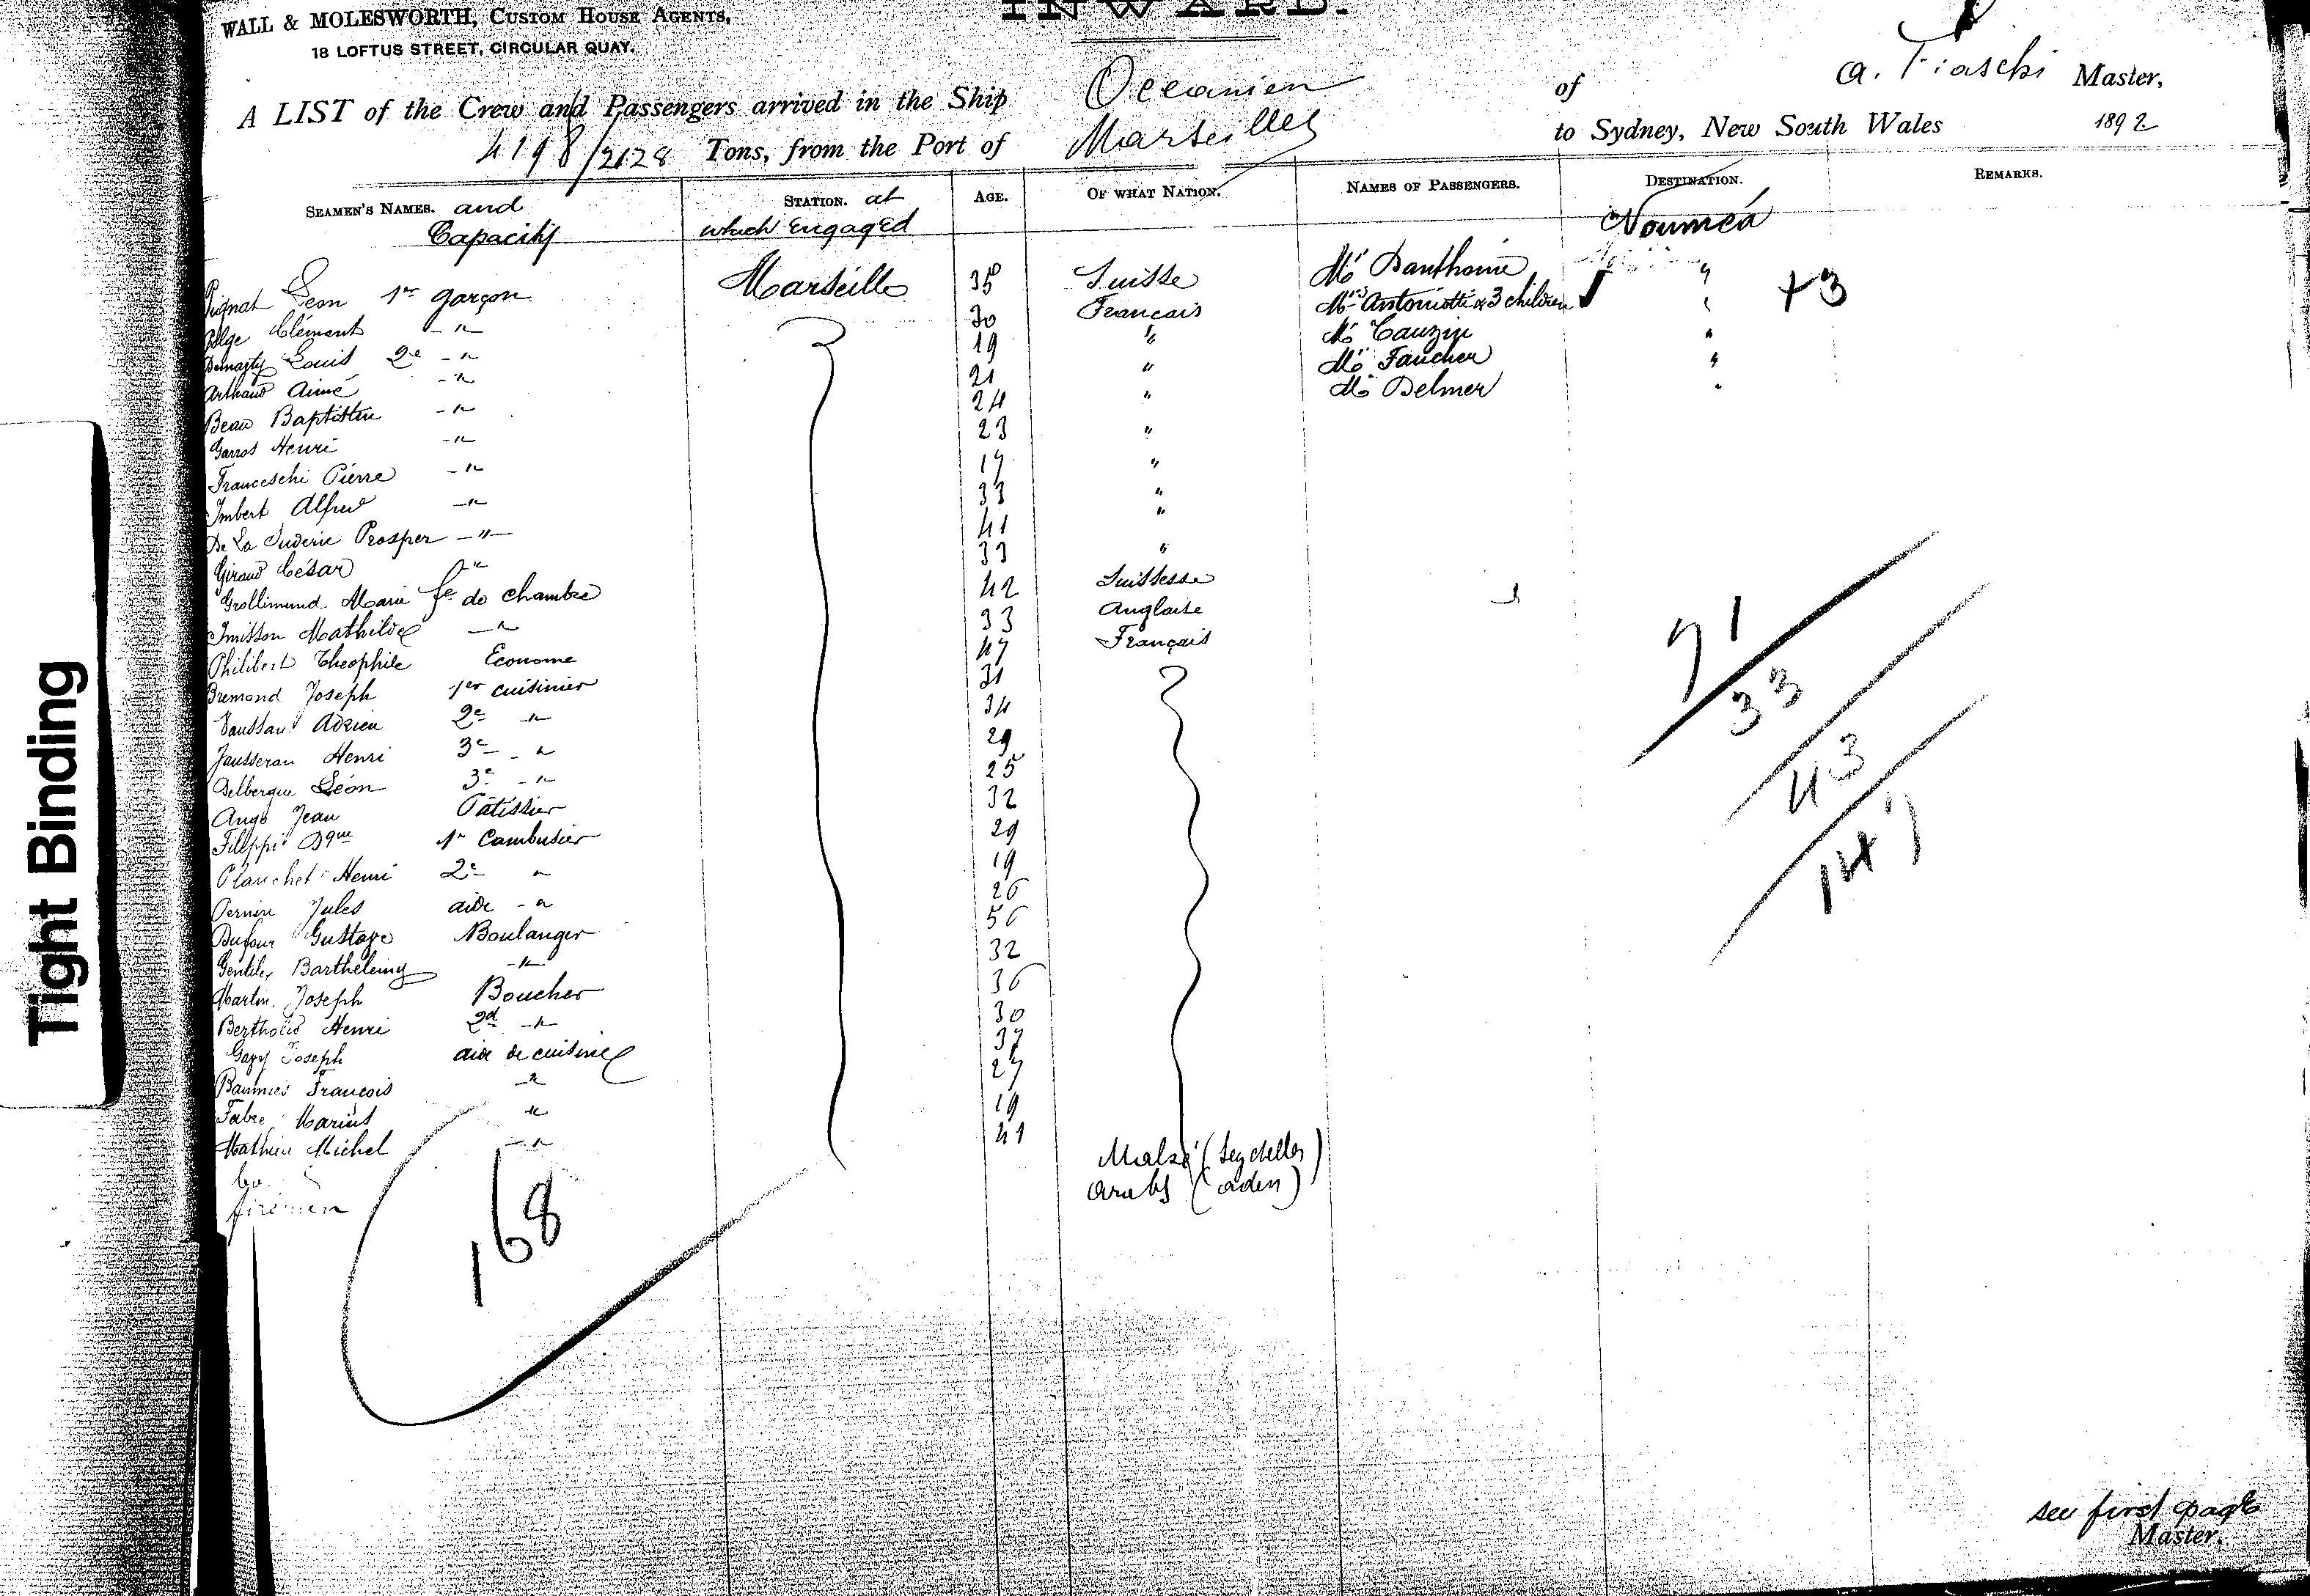 INWARD.
WALL & MOLESWORTH, CUSTOM HOUSE AGENTS,
18 LOFTUS STREET, CIRCULAR QUAY.
A LIST of the Crew and Passengers arrived in the Ship Oceanien of a. Fiaschi Master,
4198/2128 Tons, from the Port of Marseilles to Sydney, New South Wales 1892
SEAMEN'S NAMES. and Capacity STATION. at which Engaged AGE. OF WHAT NATION. NAMES OF PASSENGERS. DESTINATION. REMARKS.
Nouméa
Pignat Léon 1er garçon Marseille 35 Suisse Mr Danthoine "
Clément -"- 30 Français Mrs Antoniotti & 3 children " +3
Louis 2e -"- 19 " Mr Cauzin "
Arthaud Aimé -"- 21 " Mr Faucher "
Beau Baptistin -"- 24 " Mr Delmer "
Garros Henri -"- 23 "
Franceschi Pierre -"- 17 "
Imbert Alfred -"- 33 "
De La Prosper -"- 41 "
Giraud César -"- 33 "
Grollimund Marie fe de chambre 42 Suissesse
Mathilde -"- 33 Anglaise
Philibert Théophile Econome 47 Français
Bremond Joseph 1er cuisinier 31
Adrien 2e -"- 34
Jausseran Henri 3e -"- 29
Delbergue Léon 3e -"- 25
Ange Jean Pâtissier 32
Filippi Dque 1er Cambusier 29
Planchet Henri 2e " 19
Pernin Jules aide -"- 26
Dufour Gustave Boulanger 56
Gentile Barthélemy -"- 32
Martin Joseph Boucher 36
Henri 2d -"- 30
Gary Joseph aide de cuisine 37
François -"- 27
Fabre Marius " 19
Mathieu Michel -"- 41
(Seychelles)
firemen Arabs (aden)
71
33
43
147
168
see first page
Master.
Tight Binding